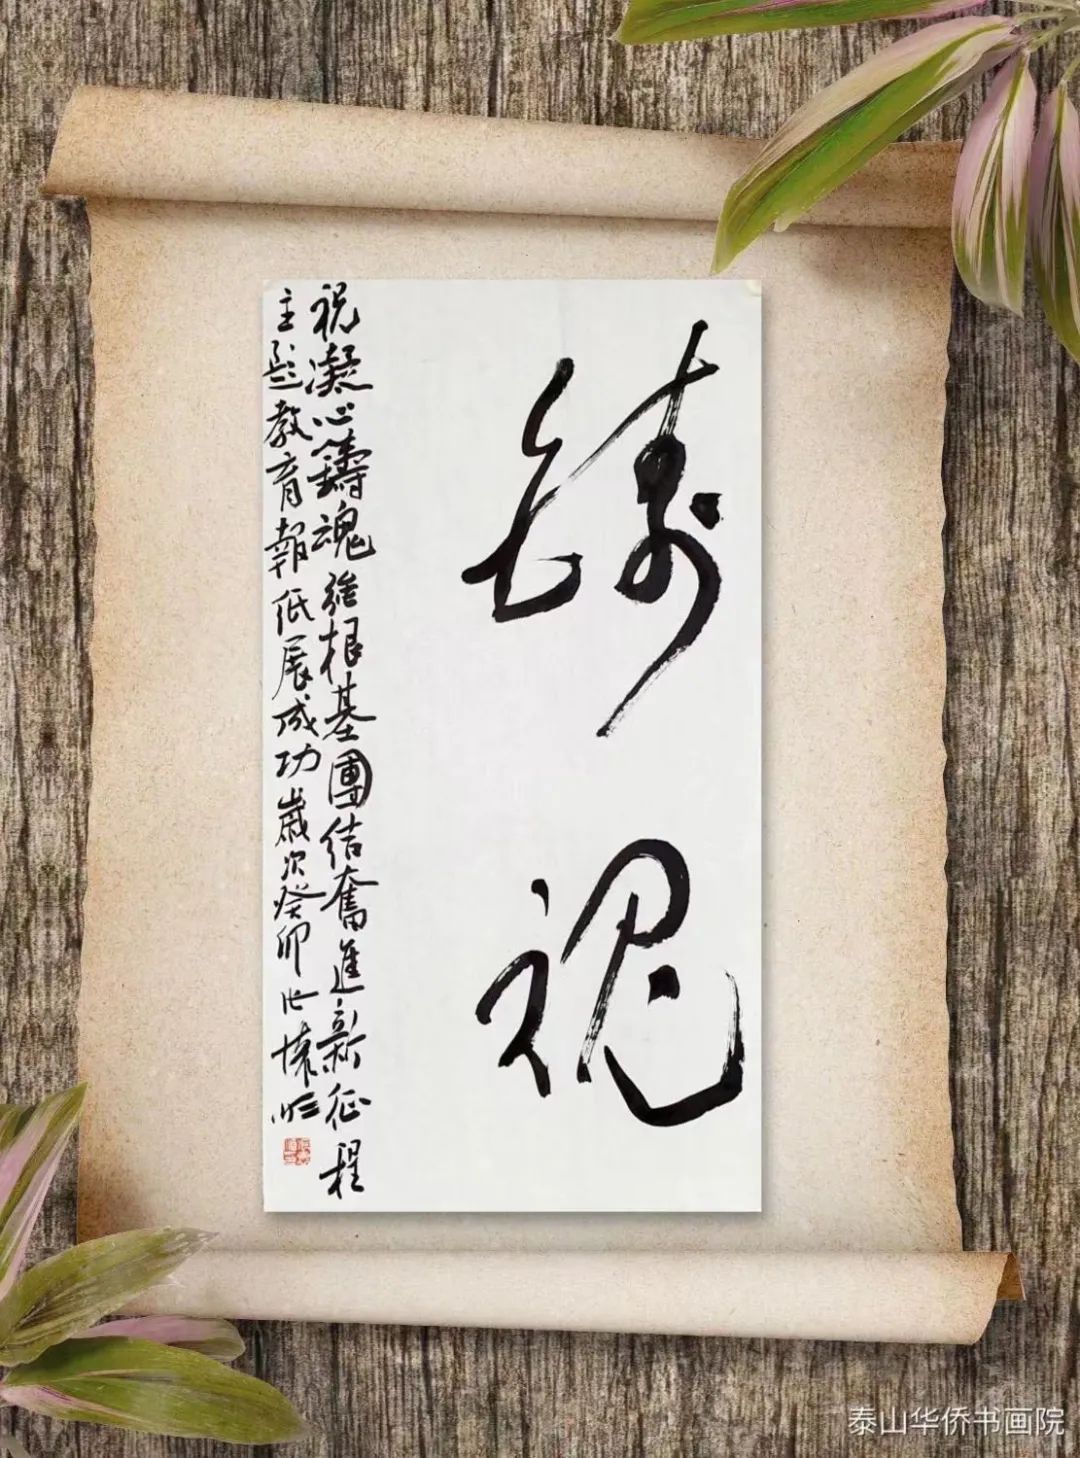 鑄魂
祝凝心鑄魂強根基團結奮進新征程
主題教育報纸展成功歲次癸卯
泰山华侨书画院